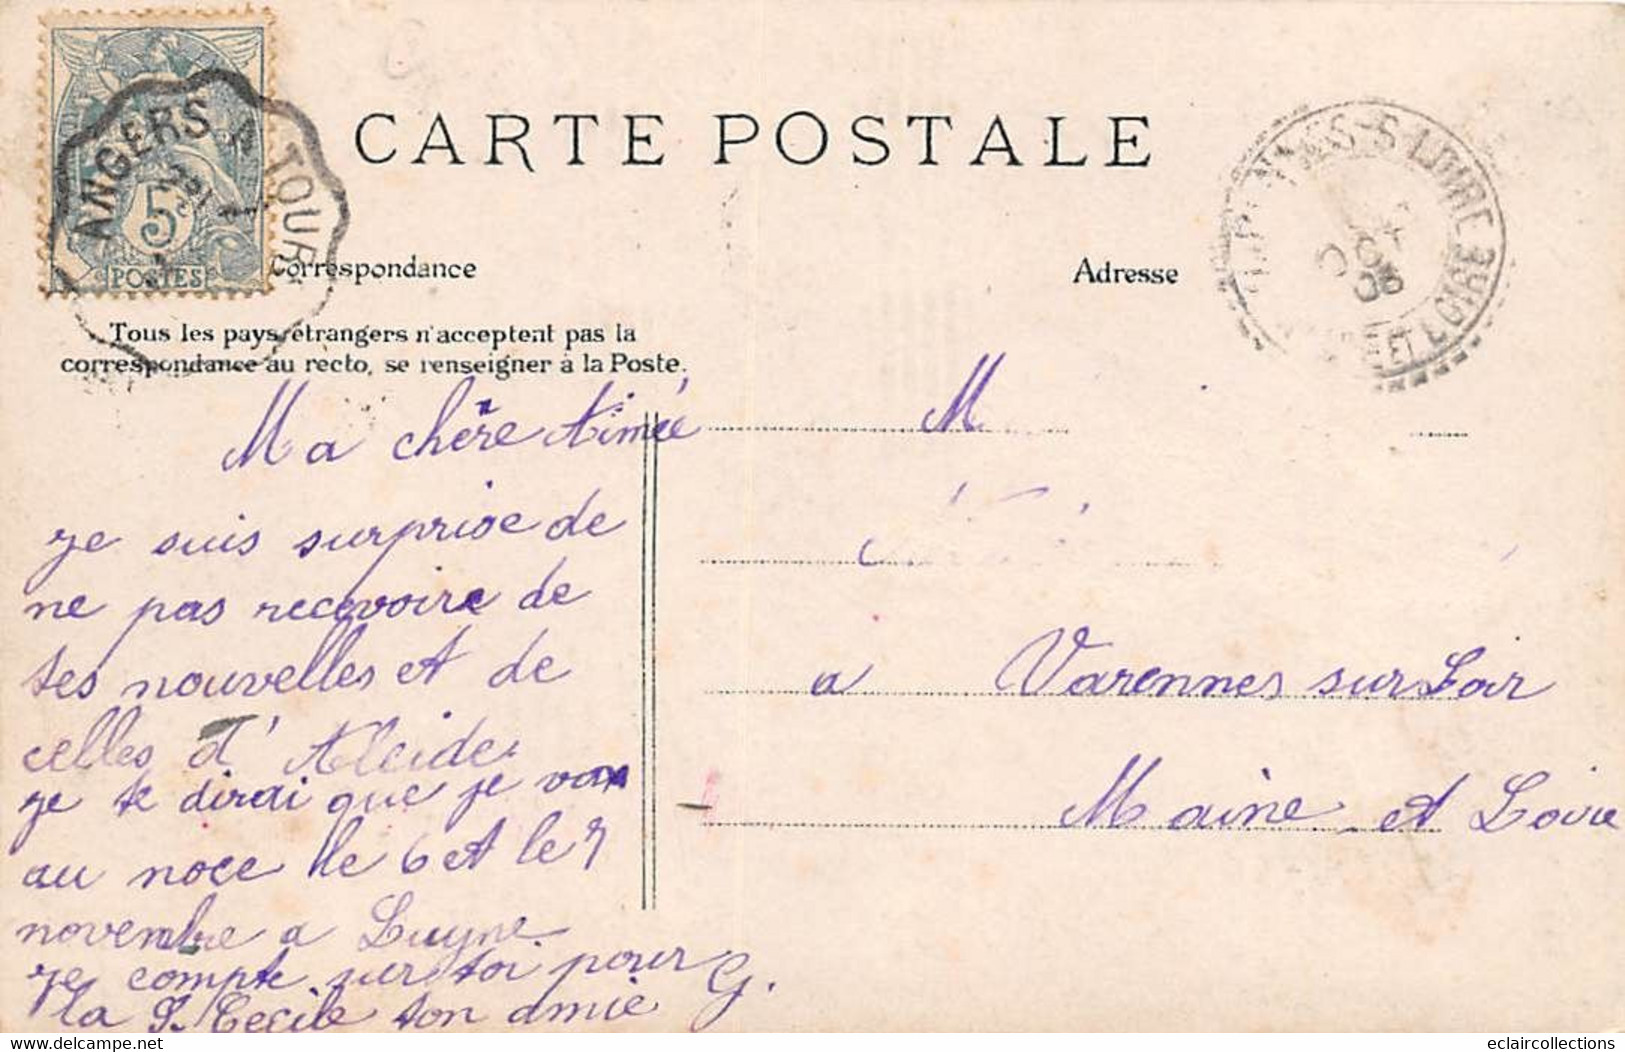 CARTE POSTALE
ANGERS A TOUR
5
POSTES
Correspondance
Adresse
Tous les pays étrangers n'acceptent pas la
correspondance au recto, se renseigner à la Poste.
S-LOIRE
ET LOIRE
Ma chère Aimée
je suis surprise de
ne pas recevoire de
tes nouvelles et de
celles d'Alcide
je te dirai que je vas
au noce le 6 et le 7
novembre a Luyne
je compte sur toi pour
la St Cecile ton amie G.
M
a Varennes sur Loir
Maine et Loire
eclaircollections